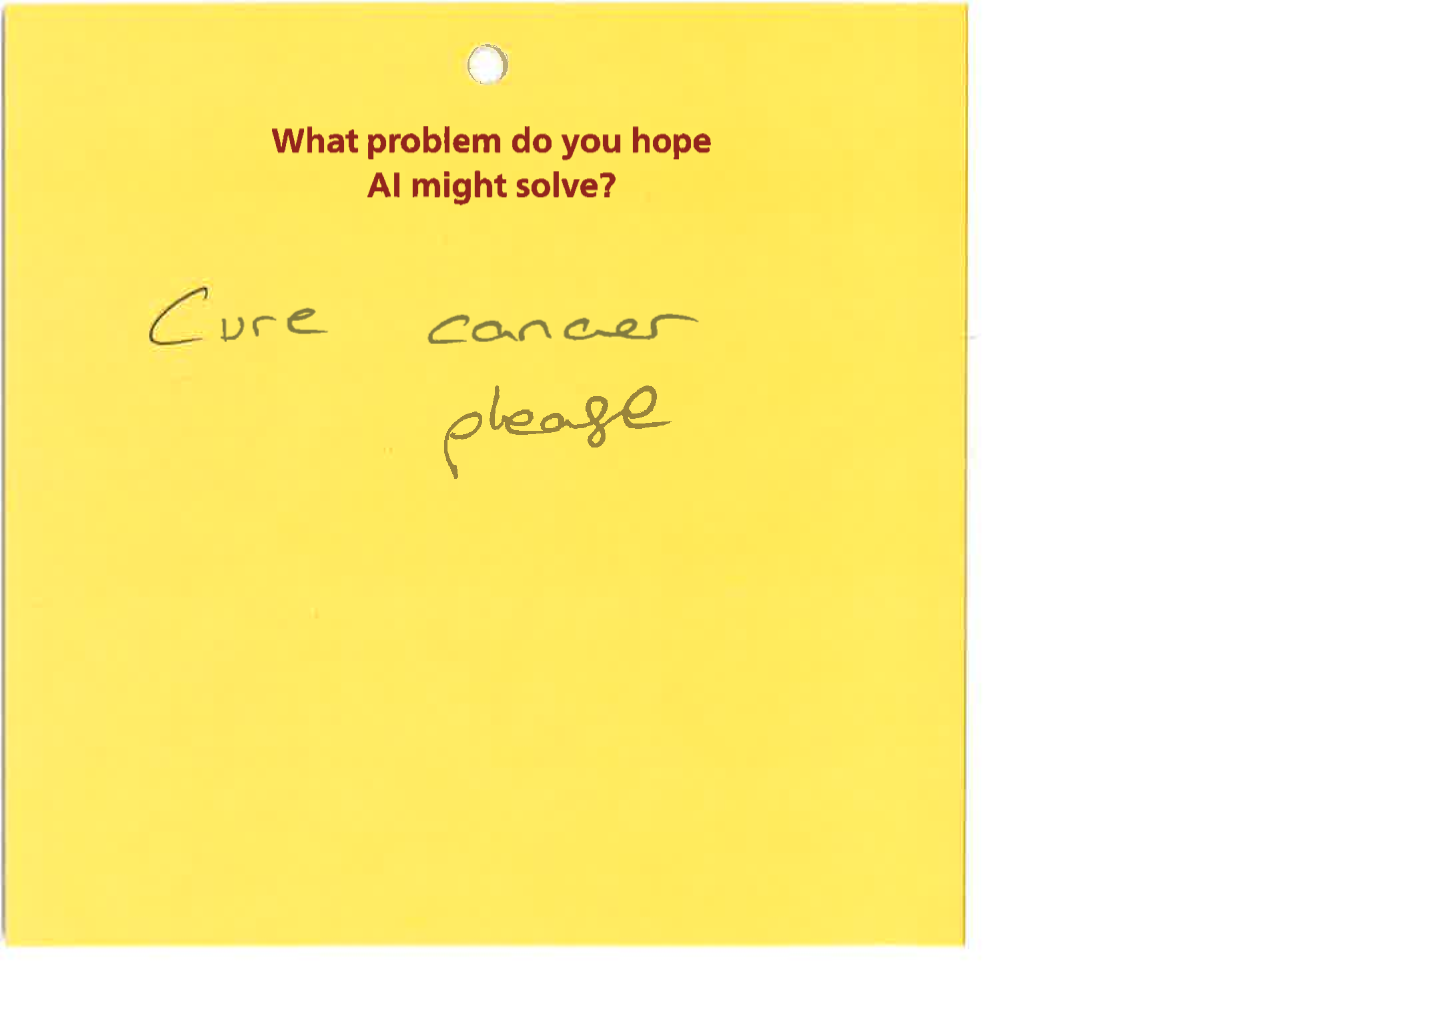 What problem do you hope
AI might solve?
Cure cancer
please